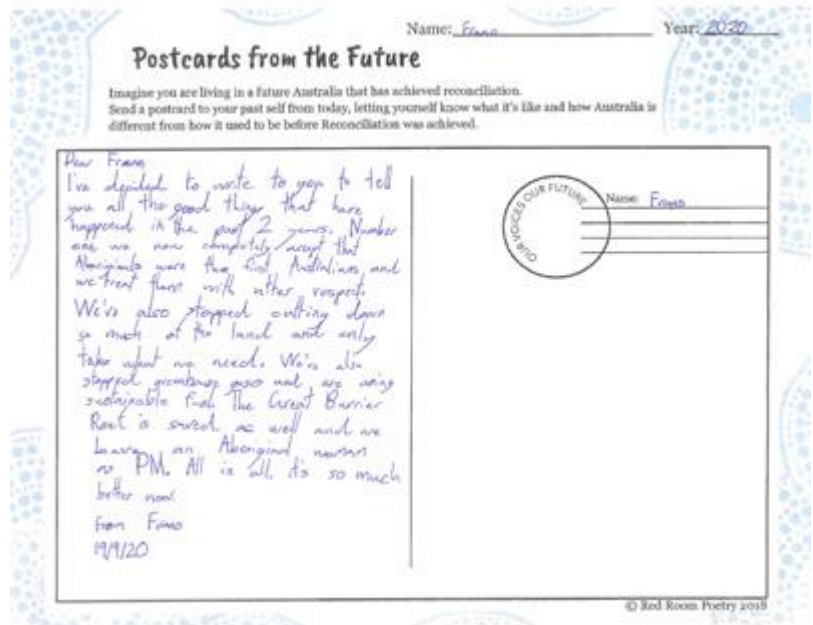 Name: Franc Year: 2020
Postcards from the Future
Imagine you are living in a future Australia that has achieved reconciliation.
Send a postcard to your past self from today, letting yourself know what it's like and how Australia is
different from how it used to be before Reconciliation was achieved.
Dear
I've decided to write to you to tell
you all the good things that have
happened in the past 2 years. Number
one we now completely accept that
Aboriginals were the first Australians and
we treat them with utter respect.
We've also stopped cutting down
so much of the land and only
take what we need. We've also
stopped greenhouse gases and are using
sustainable fuel. The Great Barrier
Reef is saved as well and we
have an Aboriginal woman
as PM. All in all, it's so much
better now.
from
19/9/20
OUR VOICES OUR FUTURE
Name:
© Red Room Poetry 2018